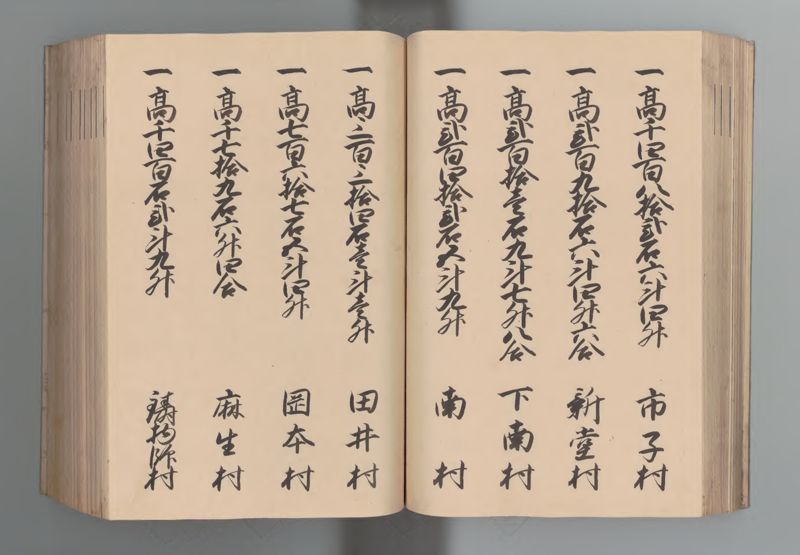 一高千四百八拾弐石六斗四升 市子村
一高弐百九拾石六斗四升六合 新堂村
一高弐百拾壱石九斗七升八合 下南村
一高弐百四拾弐石五斗九升 南村
一高三百三拾四石壱斗壱升 田井村
一高七百六拾七石五斗四升 岡本村
一高千七拾九石六升四合 麻生村
一高千四百石弐斗九升 鋳物師村